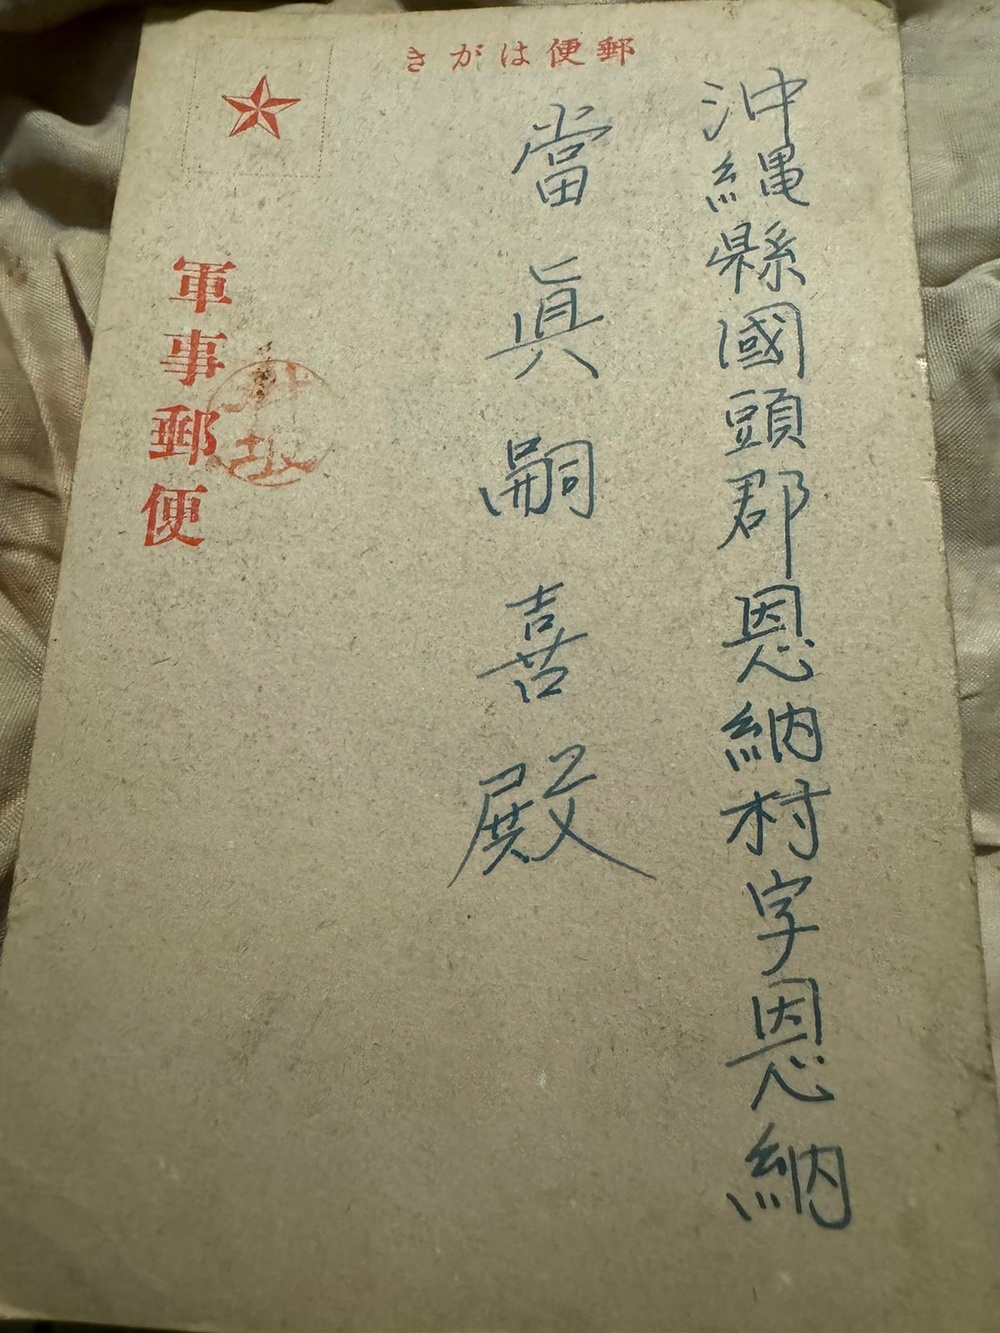 きがは便郵
沖縄縣國頭郡恩納村字恩納
當眞嗣喜殿
軍事郵便